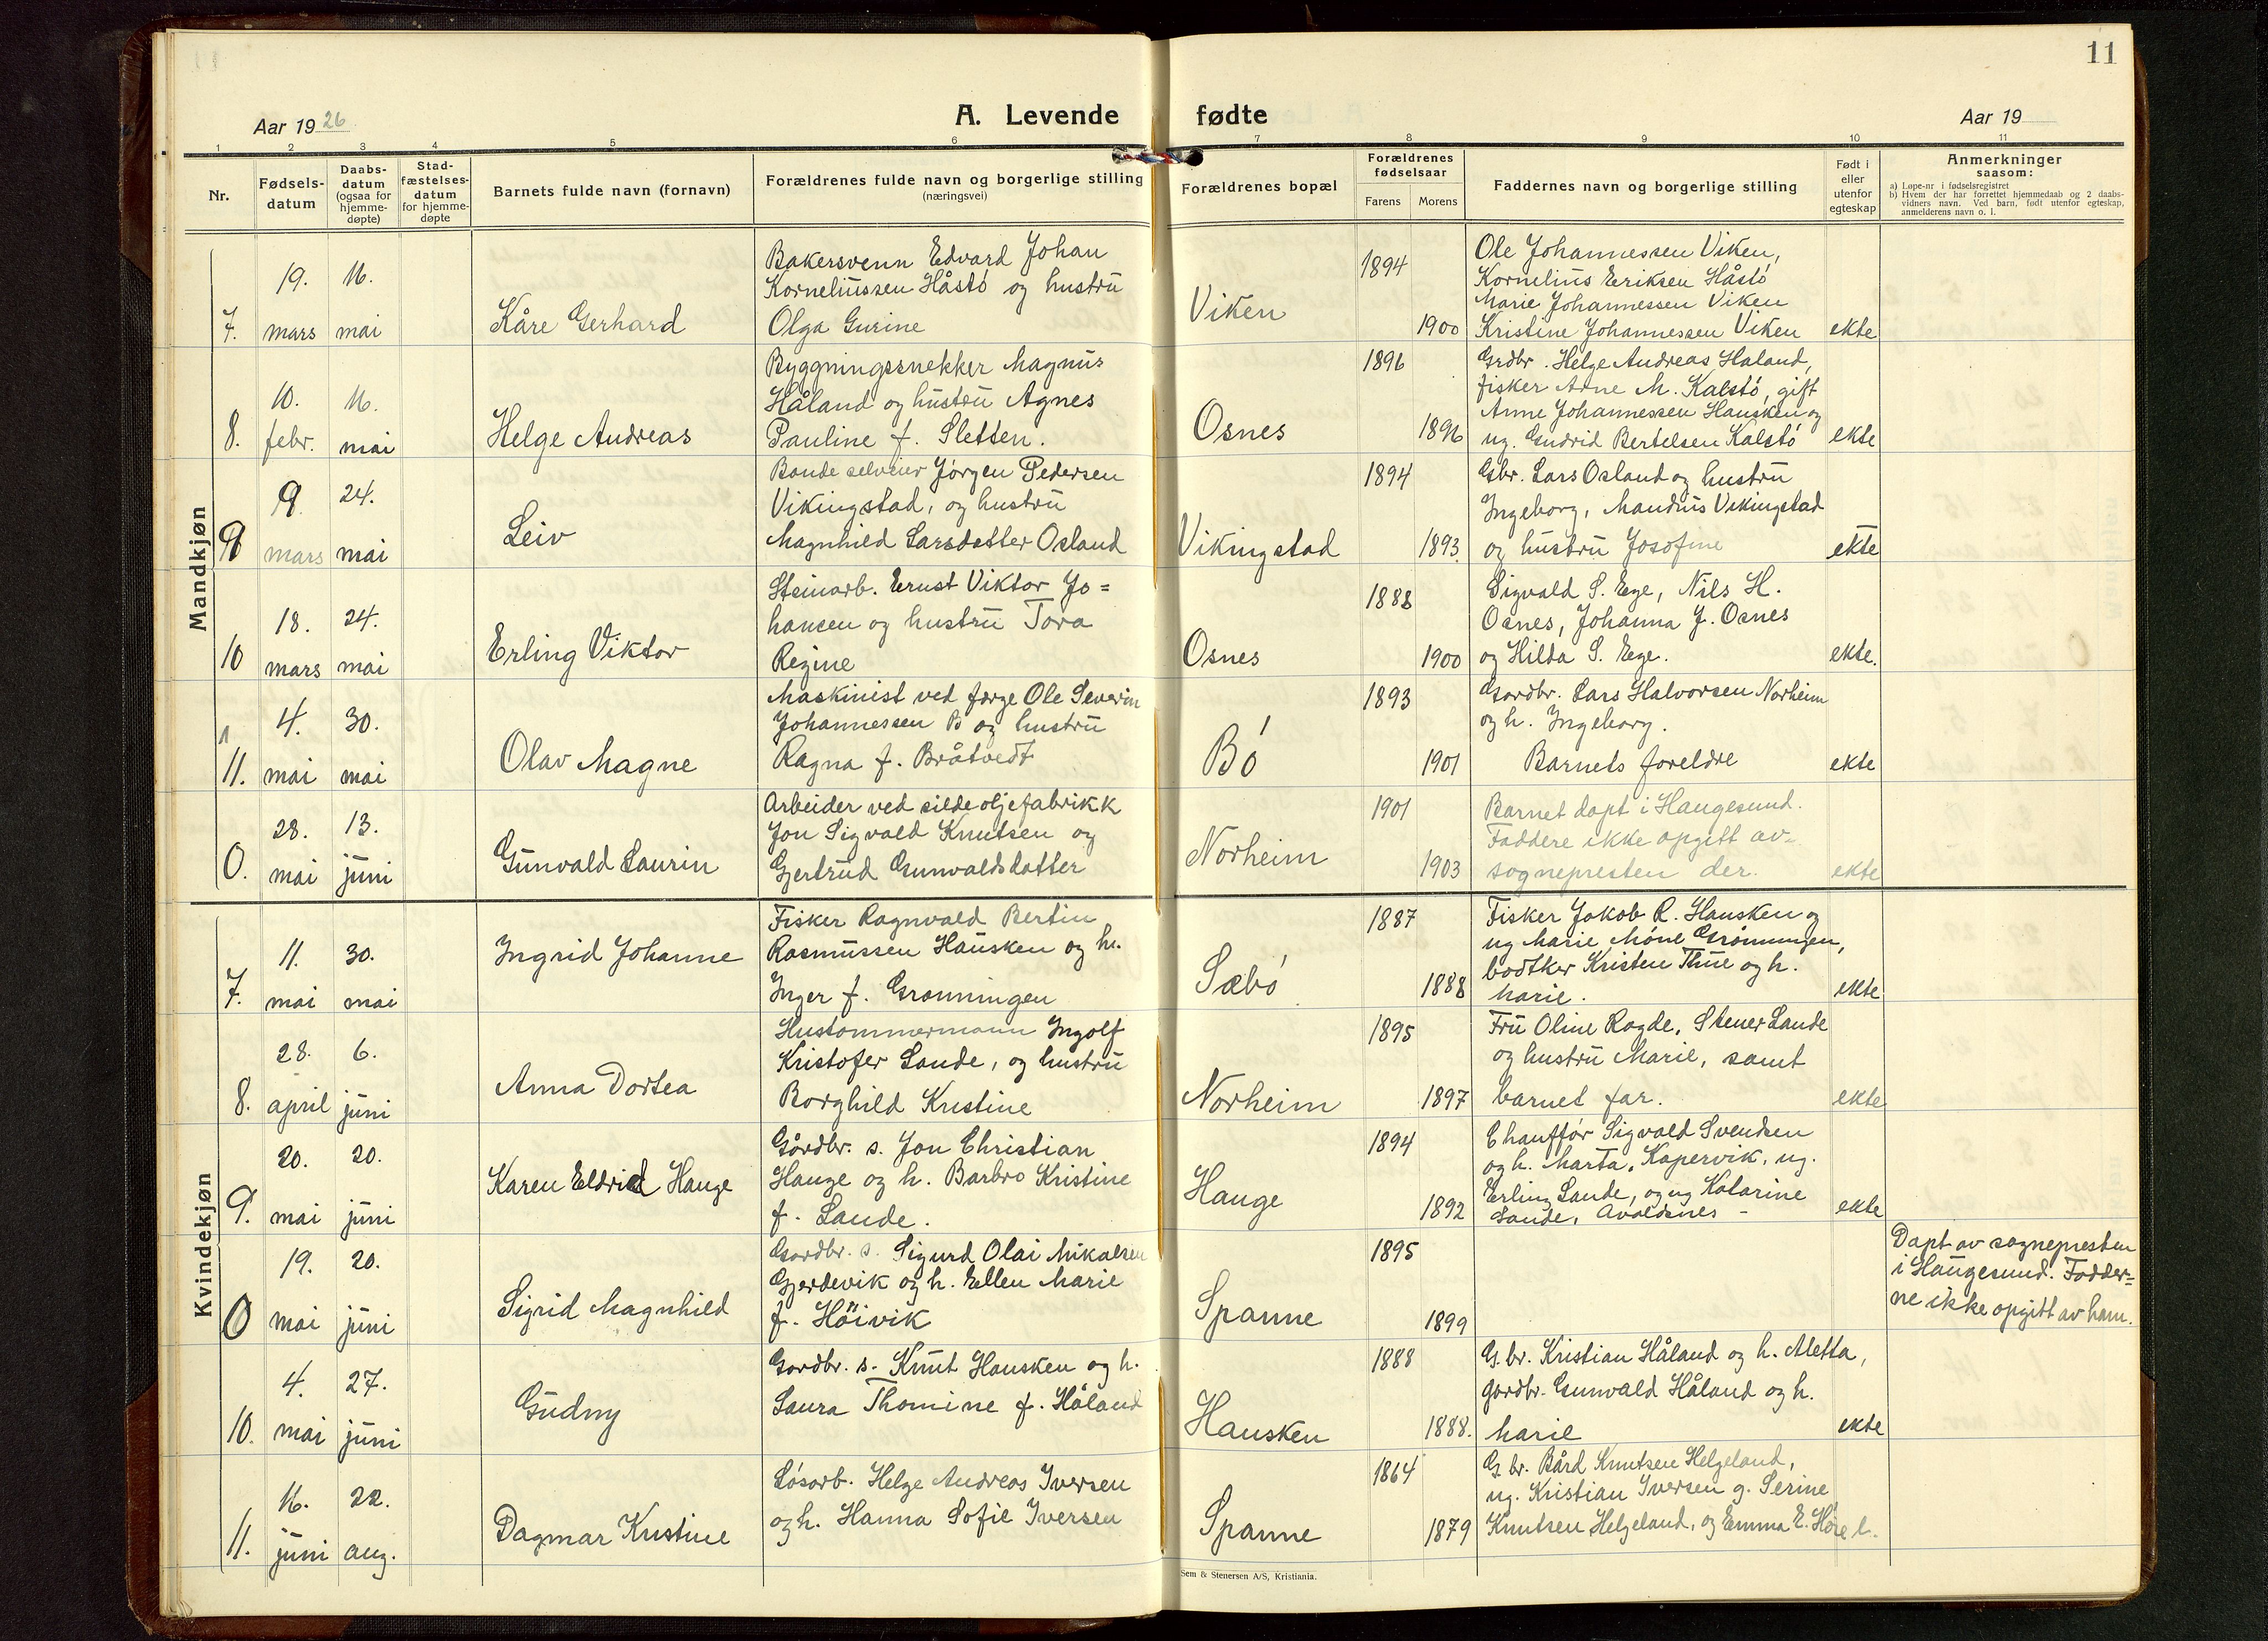 11
Aar 1926
A. Levende fødte
Aar 19
1 2 3 4 5 6 7 8 9 10 11
Nr.
Fødsels-
datum
Daabs-
datum
(ogsaa for
hjemme-
døpte)
Stad-
fæstelses-
datum
for hjemme-
døpte
Barnets fulde navn (fornavn)
Forældrenes fulde navn og borgerlige stilling
(næringsvei)
Forældrenes bopæl
Forældrenes
fødselsaar
Farens Morens
Faddernes navn og borgerlige stilling
Født i
eller
utenfor
egteskap
Anmerkninger
saasom:
a) Løpe-nr i fødselsregistret
b) Hvem der har forrettet hjemmedaab og 2 daabs-
vidners navn. Ved barn, født utenfor egteskap,
anmelderens navn o. l.
Mandkjøn
7.
19.
mars
16.
mai
Kåre Gerhard
Bakersvenn Edvard Johan
Korneliussen Håstó og hustru
Olga Gurine
Viken
1894
1900
Ole Johannessen Viken,
Kornelius Eriksen Håstó
Marie Johannessen Viken
Kristine Johannessen Viken
ekte
8.
10.
febr.
16.
mai
Helge Andreas
Byggningssnekker Magnus
Håland og hustru Agnes
Pauline f. Sletten.
Osnes
1896
1896
Grdbr. Helge Andreas Haland,
fisker Arne M. Kalstó, gift
Anne Johannessen Hausken og
ug. Gudrid Bertelsen Kalstó
ekte
9
9.
mars
24.
mai
Leiv
Bonde selveier Jórgen Pedersen
Vikingstad, og hustru
Magnhild Larsdatter Osland
Vikingstad
1894
1893
Gbr. Lars Osland og hustru
Ingeborg, Mandius Vikingstad
og hustru Josofine
ekte
10
18.
mars
24.
mai
Erling Viktor
Steinarb. Ernst Viktor Jo=
hansen og hustru Tora
Regine
Osnes
1888
1900
Sigvald S. Ege, Nils H.
Osnes, Johanna J. Osnes
og Hilda S. Ege.
ekte.
11.
4.
mai
30.
mai
Olav Magne
Maskinist ved færge Ole Severin
Johannessen Bó og hustru
Ragna f. Bråtvedt
Bó
1893
1901
Gardbr. Lars Halvorsen Norheim
og h. Ingeborg.
Barnets foreldre
ekte
0.
28.
mai
13.
juni
Gunvald Laurin
Arbeider ved sildeoljefabrikk
Jon Sigvald Knutsen og
Gjertrud Gunvaldsdatter
Norheim
1901
1903
Barnet døpt i Haugesund.
Faddere ikke opgitt av
sognepresten der.
ekte
Kvindekjøn
7.
11.
mai
30.
mai
Ingrid Johanne
Fisker Ragnvald Bertin
Rasmussen Hausken og h.
Inger f. Grønningen
Sæbó
1887
1888
Fisker Jakob R. Hausken og
ug Marie Móne Grónningen,
bødtker Kristen Thue og h.
Marie.
ekte
8.
28.
april
6.
juni
Anna Dortea
Hustømmermann Ingolf
Kristofer Sande, og hustru
Borghild Kristine
Norheim
1895
1897
Fru Oline Rogde, Stener Sande
og hustru Marie, samt
barnet far.
ekte
9.
20.
mai
20.
juni
Karen Eldrid Hauge
Gårdbr. s. Jon Christian
Hauge og h. Barbro Kristine
f. Sande.
Hauge
1894
1892
Chauffør Sigvald Svendsen
og h. Marta, Kopervik, ug.
Erling Sande, og ug Katarine
Sande, Avaldsnes -
ekte
0
19.
mai
20.
juni
Sigrid Magnhild
Gardbr. s. Sigurd Olai Mikalsen
Gjerdevik og h. Ellen Marie
f. Höivik
Spanne
1895
1899
Døpt av sognepresten
i Haugesund. Fadder=
ne ikke opgitt av ham.
10.
4.
mai
27.
juni
Gudny
Gardbr. s. Knut Hausken og h.
Laura Thomine f. Håland
Hausken
1888
1888.
G.br. Kristian Håland og h. Aletta,
gardbr. Gunvald Håland og h.
Marie
ekte
11.
16.
juni
22.
aug.
Dagmar Kristine
Lósarb. Helge Andreas Iversen
og h. Hanna Sofie Iversen
Spanne
1864
1879
G.br. Bård Knutsen Helgeland,
ug. Kristian Iversen g. Serine
Knutsen Helgeland, og Emma E.
Sem & Stenersen A/S, Kristiania.